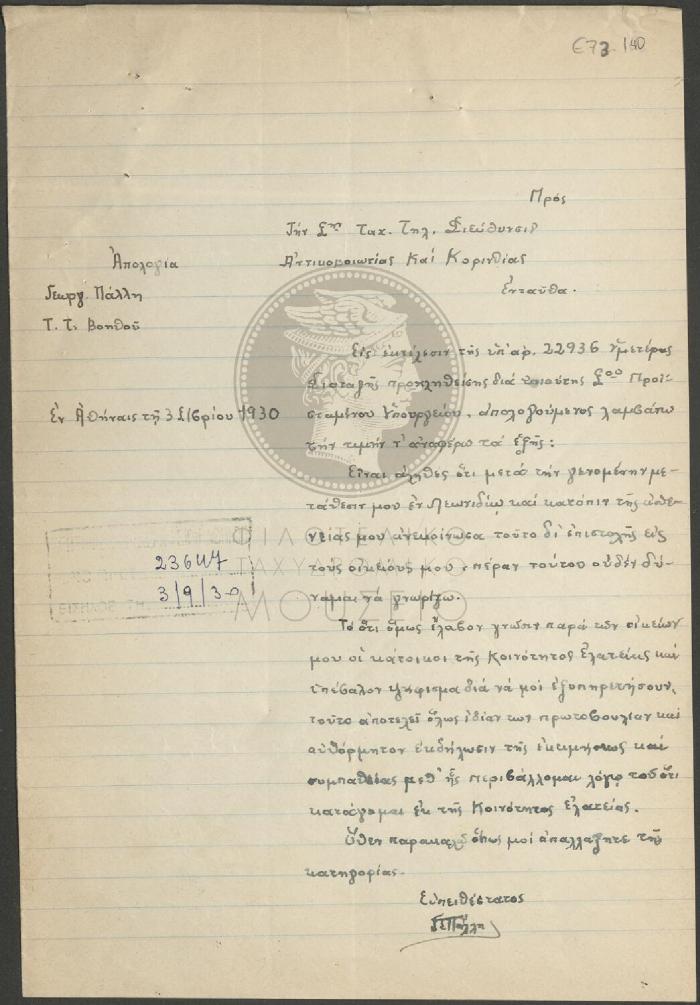 Ε73.140
Πρὸς
Τὴν Σην Ταχ. Τηλ. Διεύθυνσιν
Ἀττικοβοιωτίας καὶ Κορινθίας
ἐνταῦθα.
Ἀπολογία
Γεωργ. Πάλλη
Τ.Τ. Βοηθοῦ
Ἐν Ἀθήναις τῇ 3 7/βρίου 1930
Εἰς ἐκτέλεσιν τῆς ὑπ' ἀρ. 22936 ὑμετέρας
διαταγῆς προκληθείσης διὰ τοιαύτης Σου Προϊ-
σταμένου Ὑπουργείου, ἀπολογούμενος λαμβάνω
τὴν τιμὴν ν' ἀναφέρω τὰ ἑξῆς:
Εἶναι ἀληθὲς ὅτι μετὰ τὴν γενομένην με-
τάθεσιν μου ἐν Λεωνιδίῳ καὶ κατόπιν τῆς ἀσθε-
νείας μου ἀνεκοίνωσα τοῦτο δι' ἐπιστολῆς εἰς
τοὺς οἰκείους μου, πέραν τούτου οὐδὲν δύ-
ναμαι νὰ γνωρίζω.
Τὸ ὅτι ὅμως ἔλαβον γνῶσιν παρὰ τῶν οἰκείων
μου οἱ κάτοικοι τῆς Κοινότητος Ἐλατείας καὶ
ὑπέβαλον ψήφισμα διὰ νὰ μοὶ ἐξυπηρετήσουν,
τοῦτο ἀποτελεῖ ὅλως ἰδίαν των πρωτοβουλίαν καὶ
αὐθόρμητον ἐκδήλωσιν τῆς ἐκτιμήσεως καὶ
συμπαθείας μεθ' ἧς περιβάλλομαι λόγῳ τοῦ ὅτι
κατάγομαι ἐκ τῆς Κοινότητος Ἐλατείας.
Ὅθεν παρακαλῶ ὅπως μοὶ ἀπαλλάξητε τῆς
κατηγορίας.
Εὐπειθέστατος
ΓΠάλλη
23647
3/9/30
ΦΙΛΟΤΕΛΙΚΟ
ΤΑΧΥΔΡΟΜΙΚΟ
ΜΟΥΣΕΙΟ